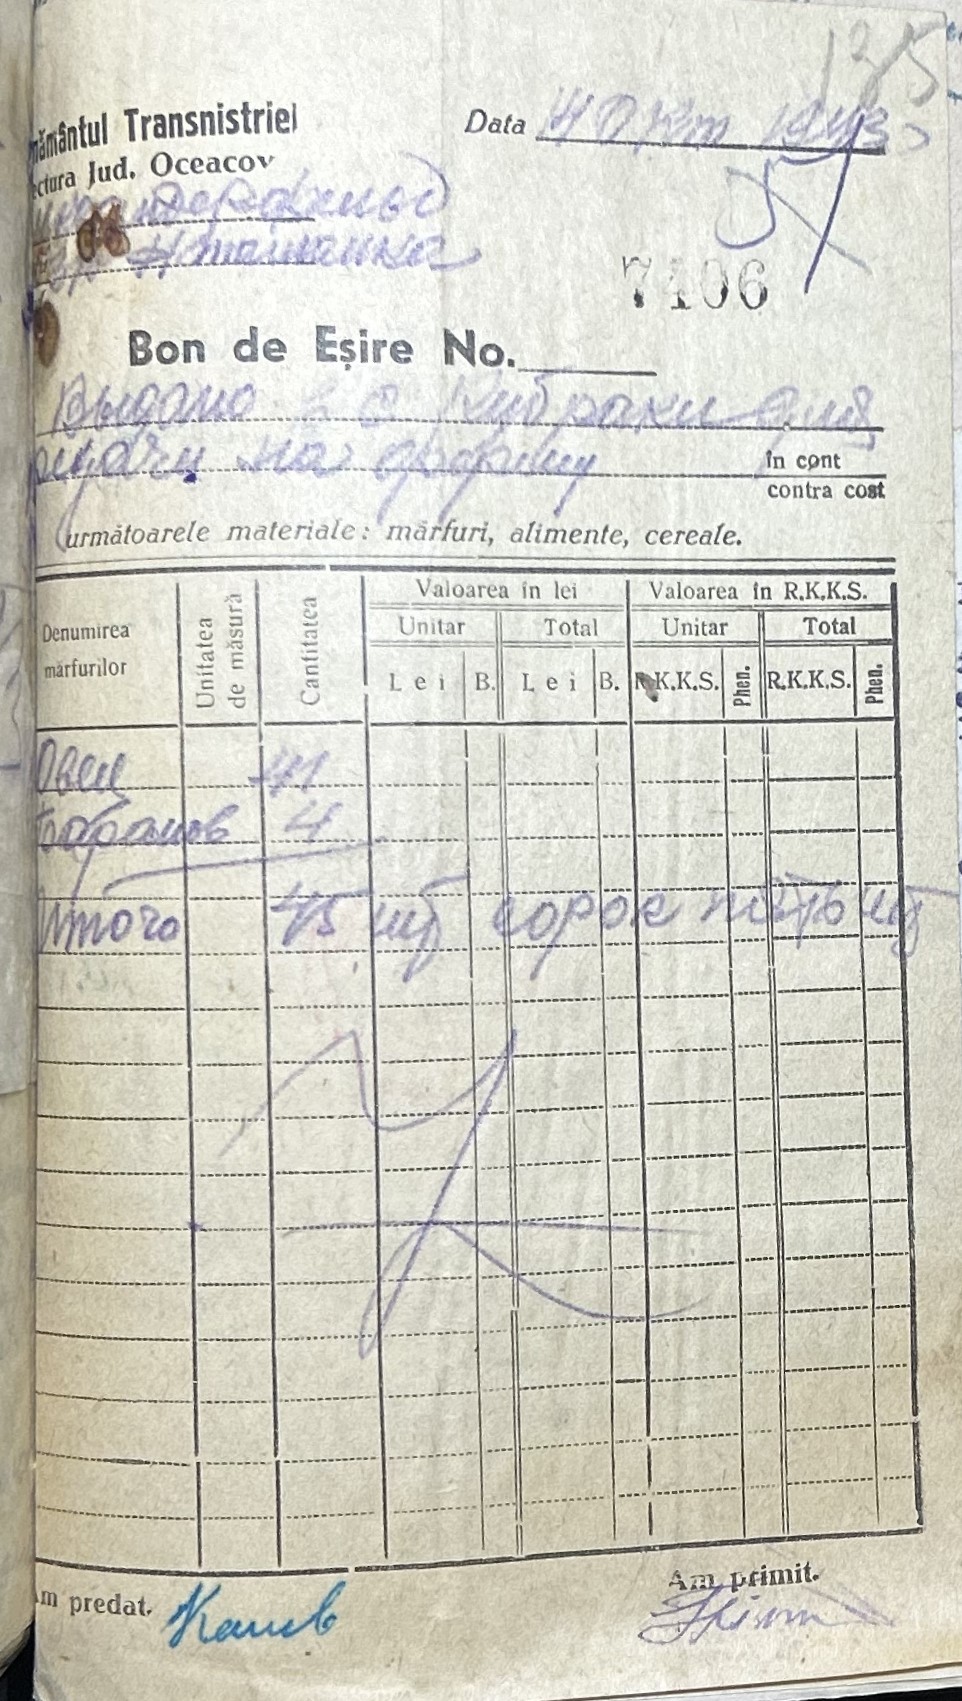 135
mământul Transnistriei
Data 4 Окт 1943
ectura Jud. Oceacov
57
7406
Bon de Eşire No.
Выдано для
на ферму
în cont
contra cost
următoarele materiale: mărfuri, alimente, cereale.
Denumirea mărfurilor
Unitatea de măsură
Cantitatea
Valoarea în lei
Valoarea în R.K.K.S.
Unitar Total Unitar Total
Lei B. Lei B. R.K.K.S. Phen. R.K.K.S. Phen.
Овец 41
Баранов 4
Итого 45 шт сорок пять шт
Am predat.
Am primit.